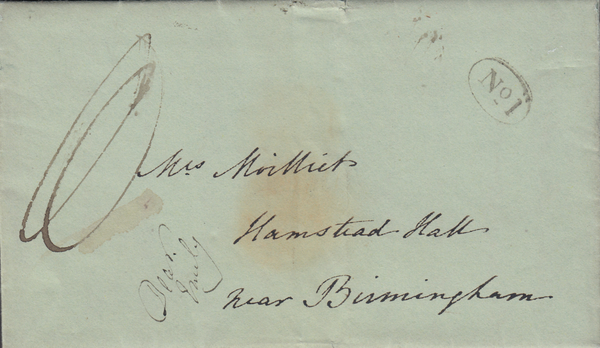 No 1
Mrs Moilliet
Hamstead Hall
near Birmingham
Emily